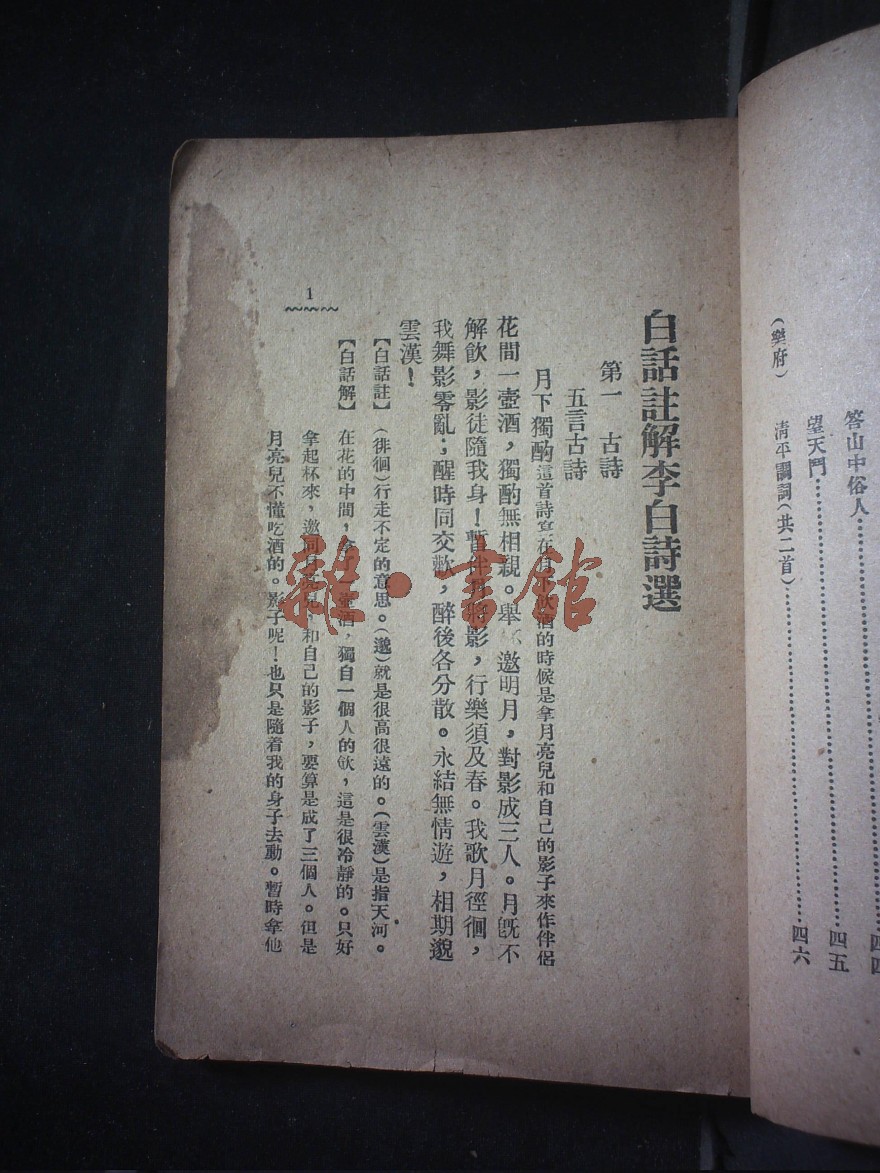 答山中俗人………………………四五
望天門………………………四五
(樂府)　清平調詞(共二首)………………………四六
白話註解李白詩選
第一　古詩
五言古詩
月下獨酌這首詩寫在月下飲酒的時候是拿月亮兒和自己的影子來作伴侶
花間一壺酒，獨酌無相親。舉　邀明月，對影成三人。月既不
解飲，影徒隨我身！暫伴月將影，行樂須及春。我歌月徑徊，
我舞影零亂；醒時同交歡，醉後各分散。永結無情遊，相期邈
雲漢！
【白話註】　(徘徊)行走不定的意思。(邈)就是很高很遠的。(雲漢)是指天河。
【白話解】　在花的中間，拿了一壺酒，獨自一個人的飲，這是很冷靜的。只好
拿起杯來，邀同月亮兒，和自己的影子，要算是成了三個人。但是
月亮兒不懂吃酒的。影子呢！也只是隨着我的身子去動。暫時拿他
1
雜·書館